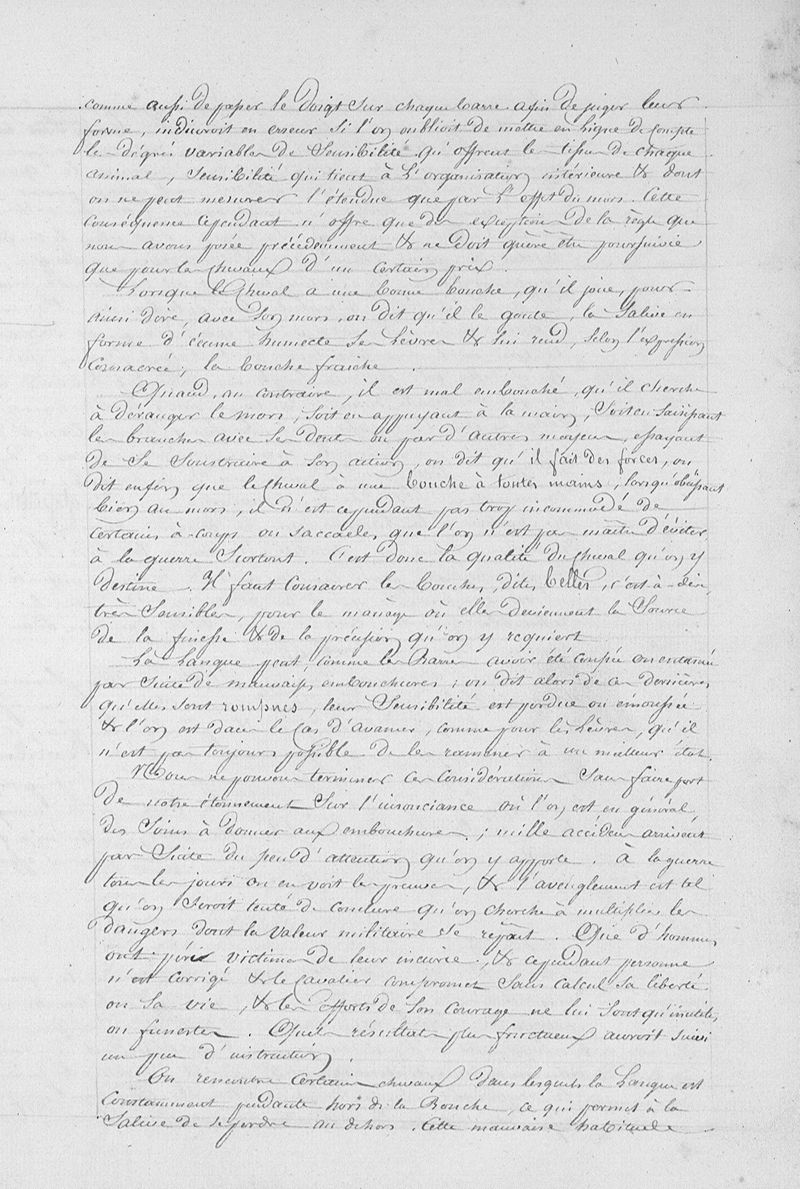 comme aussi de passer le Doigt sur chaque barre afin de juger leur
forme, induiroit en erreur si l'on oublioit de mettre en ligne de compte
les dégrés variables de Sensibilité qu'offrent le tissu de chaque
animal, Sensibilité qui tient à l'organisation intérieure & dont
on ne peut mesurer l'étendue que par l'effet du mors. Cette
conséquence cependant n'offre que des exceptions de la règle que
nous avons posée précédemment & ne doit guère être poursuivie
que pour les chevaux d'un certain prix.
Lorsque le Cheval a une bonne bouche, qu'il joue, pour
ainsi dire, avec son mors, on dit qu'il le goute, la Salive en
forme d'écume humecte ses lèvres & lui rend, selon l'expression
consacrée, la bouche fraiche.
Quand, au contraire, il est mal embouché, qu'il cherche
à déranger le mors, soit en appuyant à la main, soit en saisissant
les branches avec ses dents ou par d'autres moyens, essayant
de se soustraire à son action, on dit qu'il fait des forces, on
dit enfin que le cheval à une bouche à toutes mains, lorsqu'obéissant
bien au mors, il n'est cependant pas trop incommodé de
certains à-coups ou saccades, que l'on n'est pas maitre d'éviter
à la guerre Surtout. C'est donc la qualité du cheval qu'on y
destine. Il faut conserver les bouches, dites belles, c'est-à-dire,
très Sensibles, pour le manège où elles deviennent la Source
de la finesse & de la précision qu'on y requiert
La Langue peut, comme les Barres avoir été coupée ou entamée
par Suite de mauvaises embouchures; on dit alors de ces dernières
qu'elles sont rompues, leur Sensibilité est perdue ou émoussée
& l'on est dans le cas d'avancer, comme pour les lèvres, qu'il
n'est pas toujours possible de les ramener à un meilleur état.
Nous ne pouvons terminer ces considérations Sans faire part
de notre étonnement Sur l'insouciance où l'on est en général
des Soins à donner aux embouchures; mille accidens arrivent
par Suite du peu d'attention qu'on y apporte. à la guerre
tous les jours on en voit les preuves, & l'aveuglement est tel
qu'on Seroit tenté de conclure qu'on cherche à multiplier les
dangers dont la valeur militaire se repait. Que d'hommes
ont péris victimes de leur incurie, & cependant personne
n'est corrigé & le Cavalier compromet Sans calcul Sa liberté
ou Sa vie, & les efforts de Son courage ne lui Sont qu'inutiles,
ou funestes. Quels résultats plus fructueux auroit suivi
un peu d'instruction.
On rencontre certains chevaux dans lesquels la Langue est
Constamment pendante hors de la Bouche, ce qui permet à la
Salive de se perdre au dehors. Cette mauvaise habitude